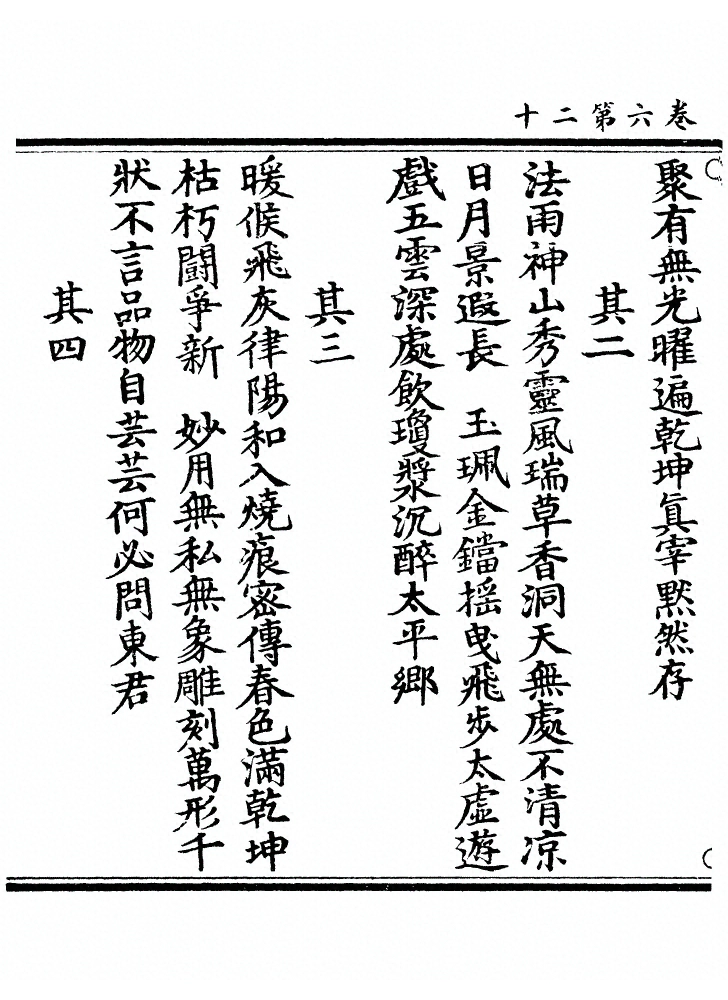 卷六第二十
聚有無光曜遍乾坤眞宰默然存
其二
法雨神山秀靈風瑞草香洞天無處不清涼
日月景遐長　玉珮金鐺摇曳飛步太虛遊
戲五雲深處飲瓊漿沉醉太平鄉
其三
暖候飛灰律陽和入燒痕密傳春色滿乾坤
枯朽鬪爭新　妙用無私無象雕刻萬形千
狀不言品物自芸芸何必問東君
其四